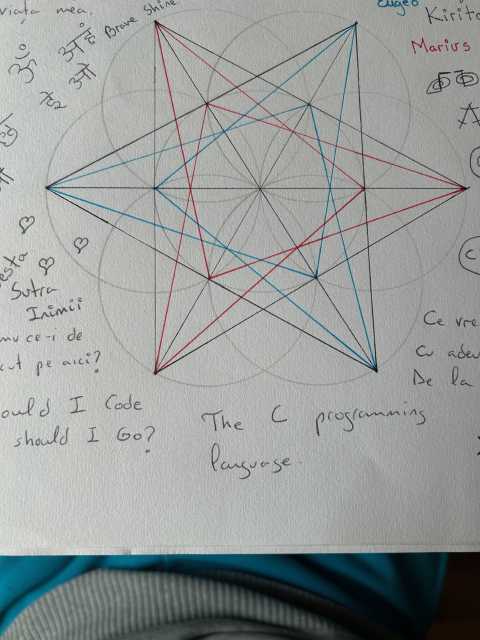 viața mea.
Brave Shine
Eugeo
Kirito
Marius
ॐ
Sutra
Inimii
de
pe aici?
Ce vre
cu adev
De la
ould I Code
should I Go?
The C programming
language.
C